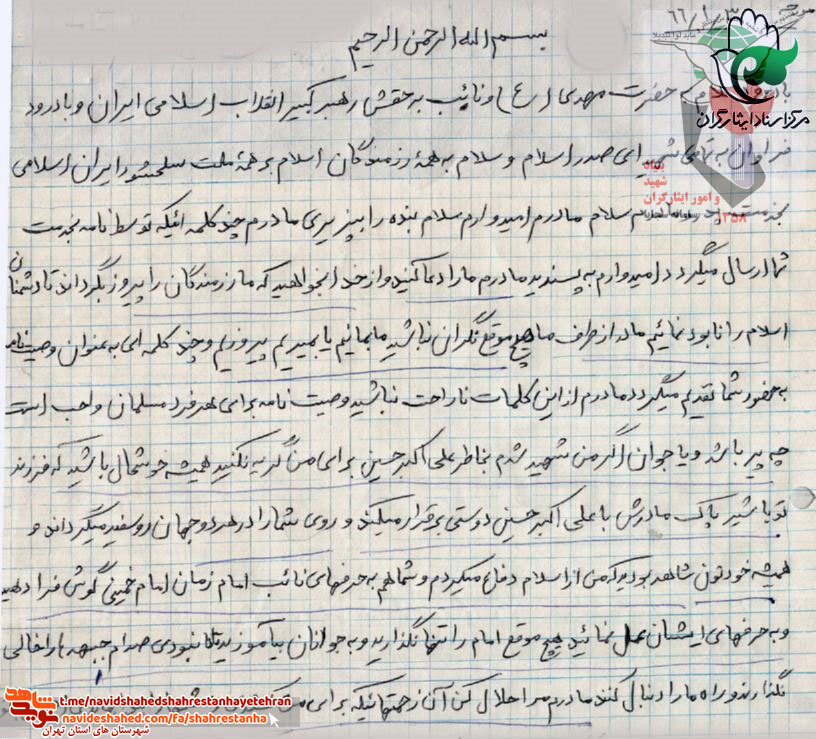 ۶۶/۱/۳
بسم الله الرحمن الرحیم
سلام به حضرت مهدی (عج) و نائب به حقش رهبر کبیر انقلاب اسلامی ایران و با درود
فراوان به تمامی شهیدای صدر اسلام و سلام به همهٔ رزمندگان اسلام بر همهٔ ملت سلحشور ایران اسلامی
بخدمت سلام مادرم امیدوارم سلام بنده را بپزیری مادرم چند کلمه ائیکه توسط نامه بخدمت
شما ارسال میگردد امیدوارم به پسندید مادرم ما را دعا کنید و از خدا بخواهید که ما رزمندگان را پیروز بگرداند تا دشمنان
اسلام را نابود نمائیم مادر از طرف ما هیچ موقع نگران نباشید ما بمانیم یا بمیریم پیروزیم و چند کلمه ایی به عنوان وصیت نامه
به حضور شما تقدیم میگردد مادرم از این کلمات ناراحت نباشید وصیت نامه برای هر فرد مسلمان واجب است
چه پیر باشد و یا جوان اگر من شهید شدم بخاطر علی اکبر حسین برای من گریه نکنید همیشه خوشحال باشید که فرزند
تو با شیر پاک مادرش با علی اکبر حسین دوستی برقرار میکند و روی شما را در هر دو جهان روسفید میگرداند و
همیشه خودتون شاهد بودید که من از اسلام دفاع میکردم و شما هم به حرفهای نائب امام زمان امام خمینی گوش فرا دهید
و به حرفهای ایشان عمل نمائید هیچ موقع امام را تنها نگذارید و به جوانان بیآموزید تا نابودی صدام جبهه ها را خالی
نگذارند و راه ما را دنبال کنند مادرم مرا حلال کن آن زحمتهائیکه برای من
مرکز اسناد ایثارگران
بنیاد
شهید
و امور ایثارگران
۱۳۵۸
شاهد
t.me/navidshahedshahrestanhayetehran
navideshahed.com/fa/shahrestanha
شهرستان های استان تهران